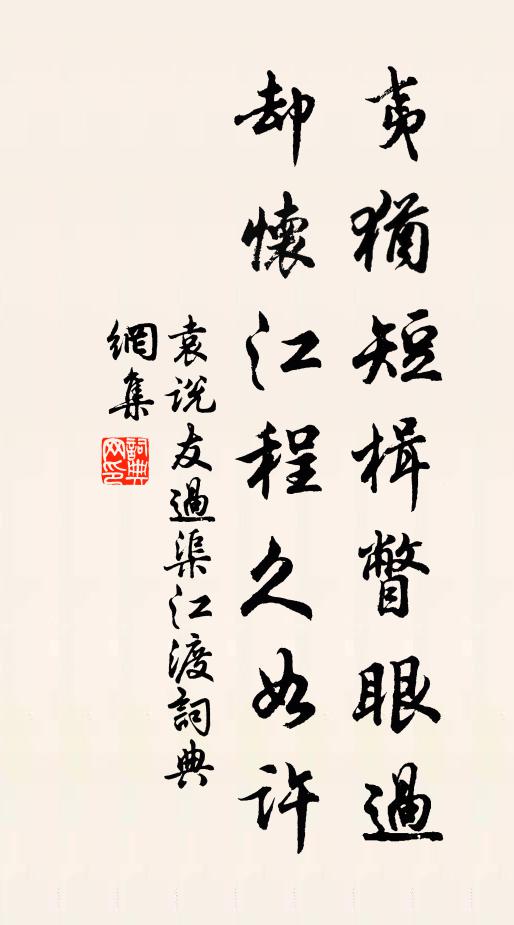 夷猶短楫瞥眼過
却懷江程久如許
袁説友過渠江渡詞典
網集
詞典網印